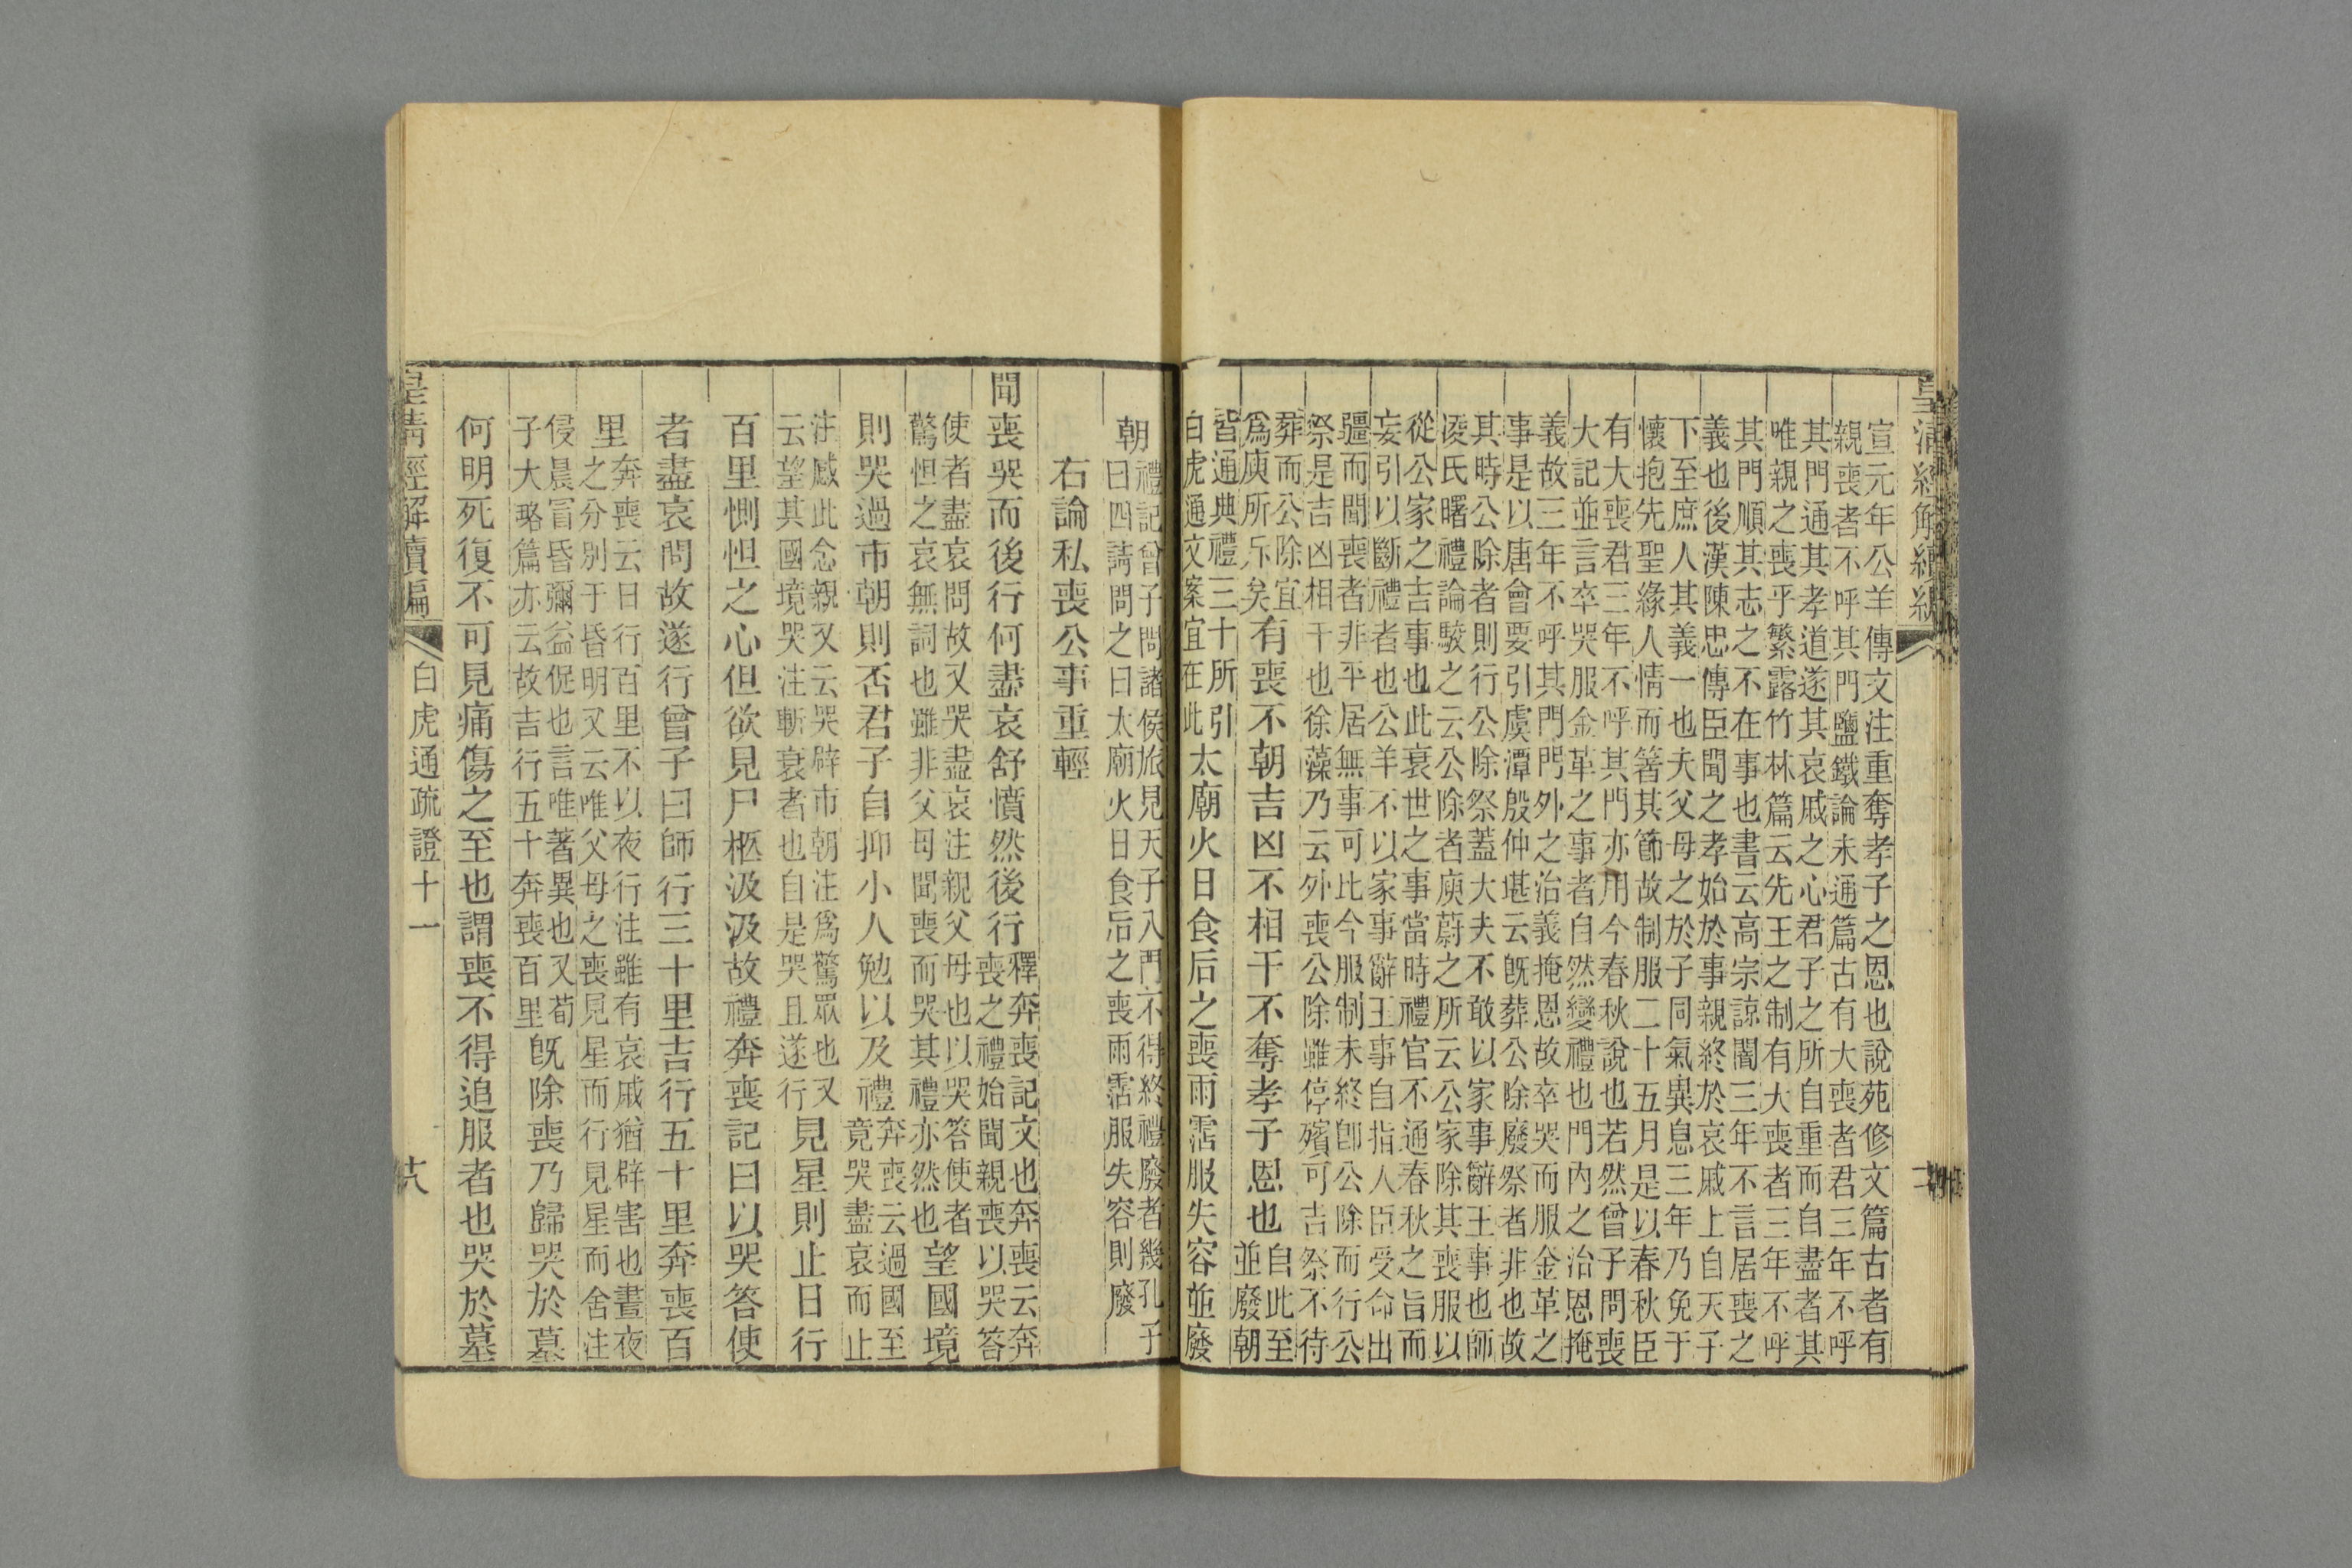 皇清經解續編
宣元年公羊傳文注重奪孝子之恩也說苑修文篇古者有
親喪者不呼其門鹽鐵論未通篇古有大喪者君三年不呼
其門通其孝道遂其哀戚之心君子之所自重而自盡者其
唯親之喪乎繁露竹林篇云先王之制有大喪者三年不呼
其門順其志之不在事也書云高宗諒闇三年不言居喪之
義也後漢陳忠傳臣聞之孝始於事親終於哀戚上自天子
下至庶人其義一也夫父母之於子同氣異息三年乃免于
懷抱先聖緣人情而著其節故制服二十五月是以春秋臣
有大喪君三年不呼其門亦用今春秋說也若然曾子問喪
大記並言卒哭服金革之事者自然變禮也門內之治恩掩
義故三年不呼其門門外之治義掩恩故卒哭而服金革之
事是以唐會要引虞潭殷仲堪云旣葬公除廢祭者非也故
其時公除者則行公除祭蓋大夫不敢以家事辭王事也師
凌氏曙禮論駮之云公除者庾蔚之所云公家除其喪服以
從公家之吉事也此衰世之事當時禮官不通春秋之旨而
妄引以斷禮者也公羊不以家事辭王事自指人臣受命出
疆而聞喪者非平居無事可比今服制未終卽公除而行公
祭是吉凶相干也徐藻乃云外喪公除雖停殯可吉祭不待
葬而公除宜
爲庾所斥矣
有喪不朝吉凶不相干不奪孝子恩也
自此至
並廢朝
皆通典禮三十所引
白虎通文案宜在此
太廟火日食后之喪雨霑服失容並廢
朝
禮記曾子問諸侯旅見天子入門不得終禮廢者幾孔子
曰四請問之曰太廟火日食后之喪雨霑服失容則廢
右論私喪公事重輕
聞喪哭而後行何盡哀舒憤然後行
釋奔喪記文也奔喪云奔
喪之禮始聞親喪以哭答
使者盡哀問故又哭盡哀注親父母也以哭答使者
驚怛之哀無詞也雖非父母聞喪而哭其禮亦然也
望國境
則哭過市朝則否君子自抑小人勉以及禮
奔喪云過國至
竟哭盡哀而止
注感此念親又云哭辟市朝注爲驚眾也又
云望其國境哭注斬衰者也自是哭且遂行
見星則止日行
百里惻怛之心但欲見尸柩汲汲故禮奔喪記曰以哭答使
者盡哀問故遂行曾子曰師行三十里吉行五十里奔喪百
里
奔喪云日行百里不以夜行注雖有哀戚猶辟害也晝夜
之分別于昏明又云唯父母之喪見星而行見星而舍注
侵晨冒昏彌益促也言唯著異也又荀
子大略篇亦云故吉行五十奔喪百里
旣除喪乃歸哭於墓
何明死復不可見痛傷之至也謂喪不得追服者也哭於墓
皇清經解續編
白虎通疏證十一